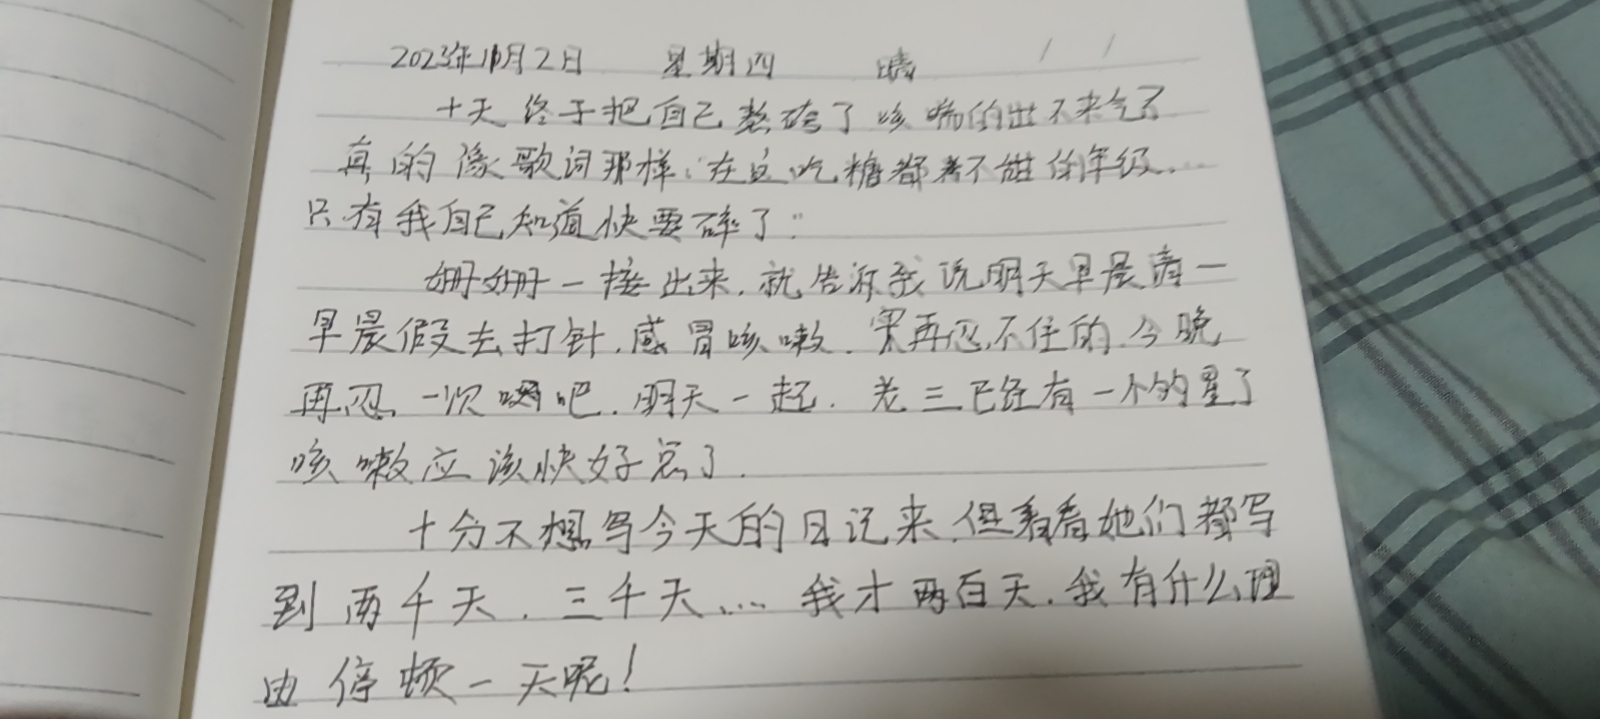 2023年11月2日 星期四 晴
十天终于把自己熬垮了咳喘的出不来气了
真的像歌词那样:在这吃糖都不甜的年级...
只有我自己知道快要碎了"
姗姗一接出来.就告诉我说明天早晨清一
早晨假去打针.感冒咳嗽.实再忍不住的.今晚
再忍一次吧.明天一起.老三已经有一个的星了
咳嗽应该快好点了.
十分不想写今天的日记来.但看看她们都写
到两千天.三千天....我才两百天.我有什么理
由停顿一天呢!